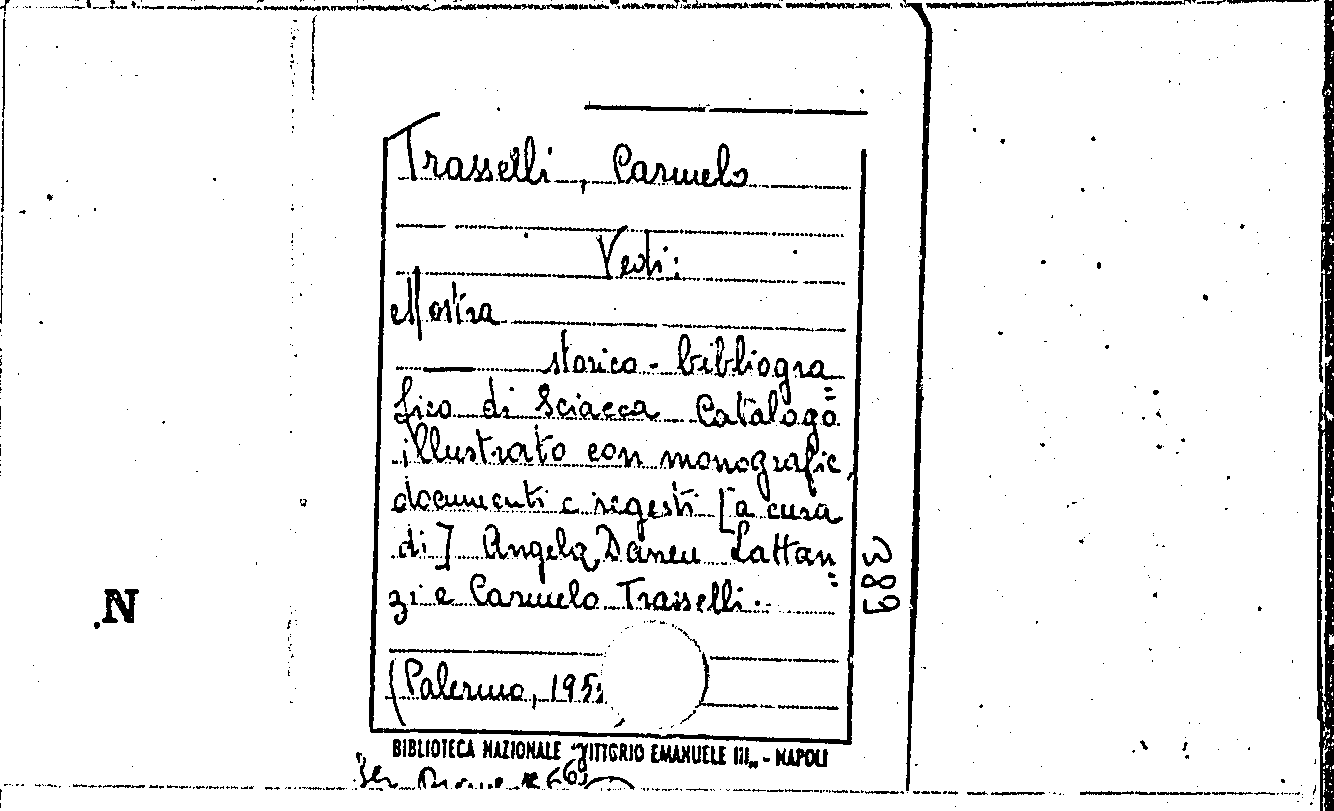 Trasselli, Carmelo
Vedi:
Mostra
storico-bibliogra=
fica di Sciacca Catalogo
illustrato con monografie,
documenti e regesti [a cura
di] Angela Daneu Lattan=
zi e Carmelo Trasselli.
(Palermo, 195
389
.N
BIBLIOTECA NAZIONALE "VITTORIO EMANUELE III" - NAPOLI